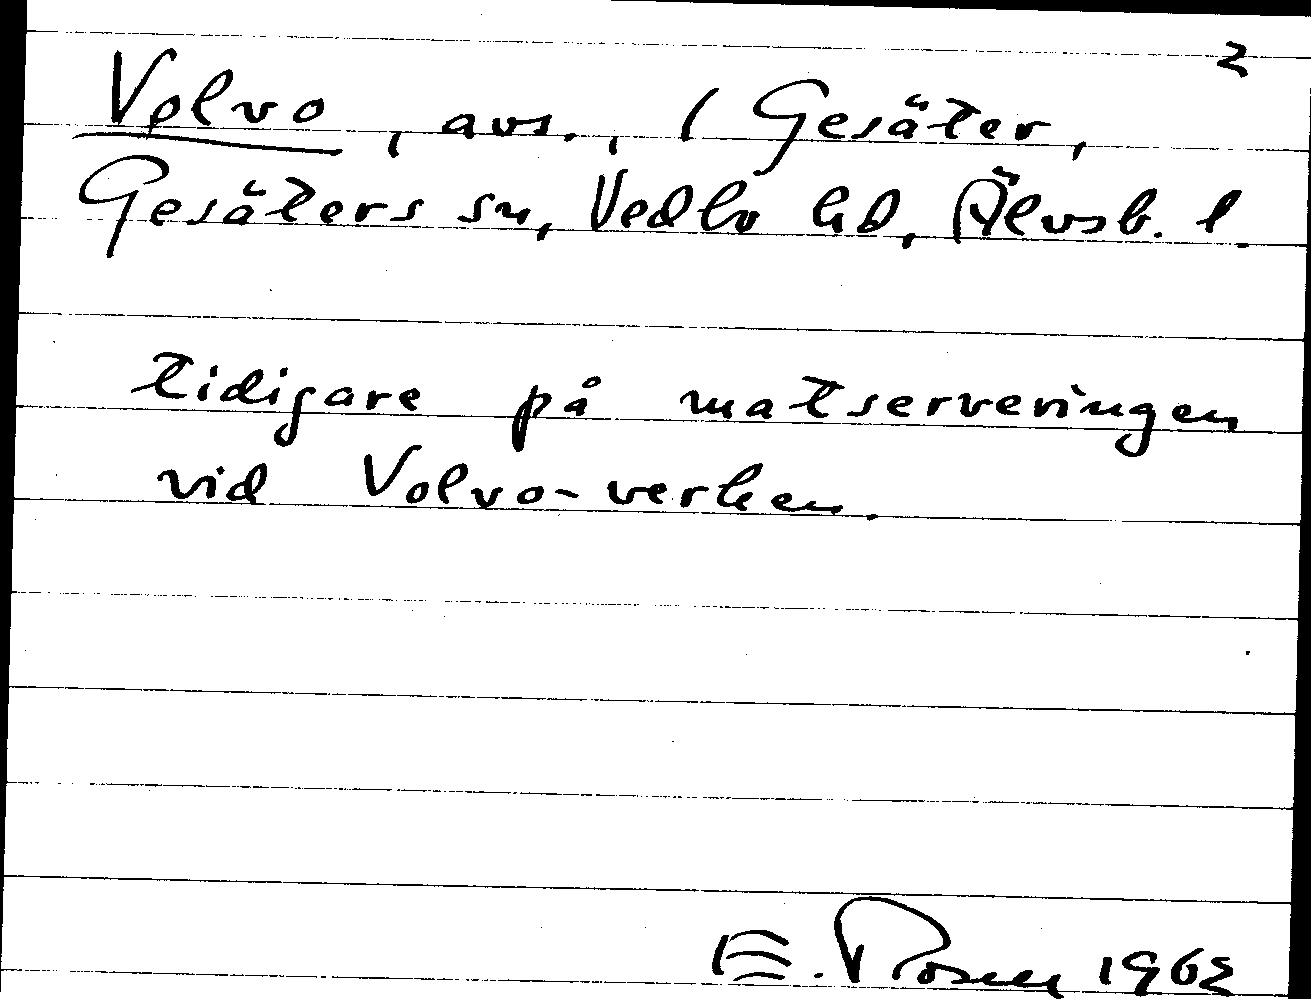 2
Volvo, avs., 1 Gesäter,
Gesäters sn, Vedbo hd, Älvsb. l.
tidigare på matserveringen
vid Volvo-verken.
E. Rosell 1962